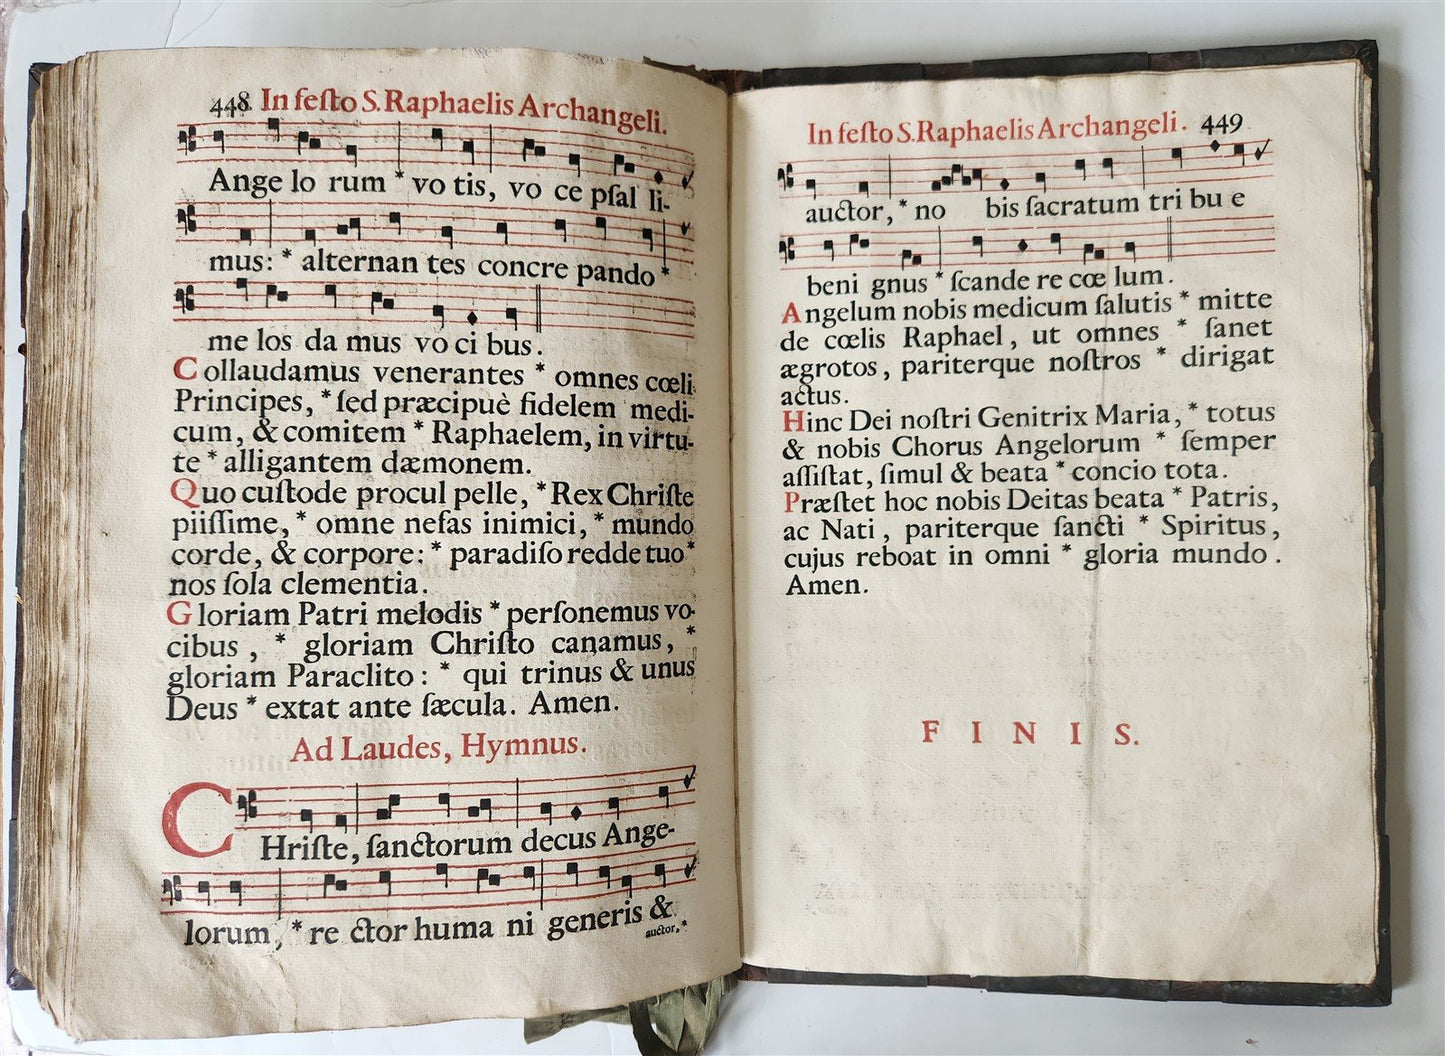 448. In feſto S. Raphaelis Archangeli.
Ange lo rum * vo tis, vo ce pſal li-
mus: * alternan tes concre pando *
me los da mus vo ci bus.
Collaudamus venerantes * omnes cœli
Principes, * ſed præcipuè fidelem medi-
cum, & comitem * Raphaelem, in virtu-
te * alligantem dæmonem.
Quo cuſtode procul pelle, * Rex Chriſte
piiſſime, * omne nefas inimici, * mundo
corde, & corpore: * paradiſo redde tuo *
nos ſola clementia.
Gloriam Patri melodis * perſonemus vo-
cibus, * gloriam Chriſto canamus, *
gloriam Paraclito: * qui trinus & unus
Deus * extat ante ſæcula. Amen.
Ad Laudes, Hymnus.
CHriſte, ſanctorum decus Ange-
lorum, * re ctor huma ni generis &
auctor, *
In feſto S. Raphaelis Archangeli. 449
auctor, * no bis ſacratum tri bu e
beni gnus * ſcande re cœ lum.
Angelum nobis medicum ſalutis * mitte
de cœlis Raphael, ut omnes * ſanet
ægrotos, pariterque noſtros * dirigat
actus.
Hinc Dei noſtri Genitrix Maria, * totus
& nobis Chorus Angelorum * ſemper
aſſiſtat, ſimul & beata * concio tota.
Præſtet hoc nobis Deitas beata * Patris,
ac Nati, pariterque ſancti * Spiritus,
cujus reboat in omni * gloria mundo.
Amen.
FINIS.